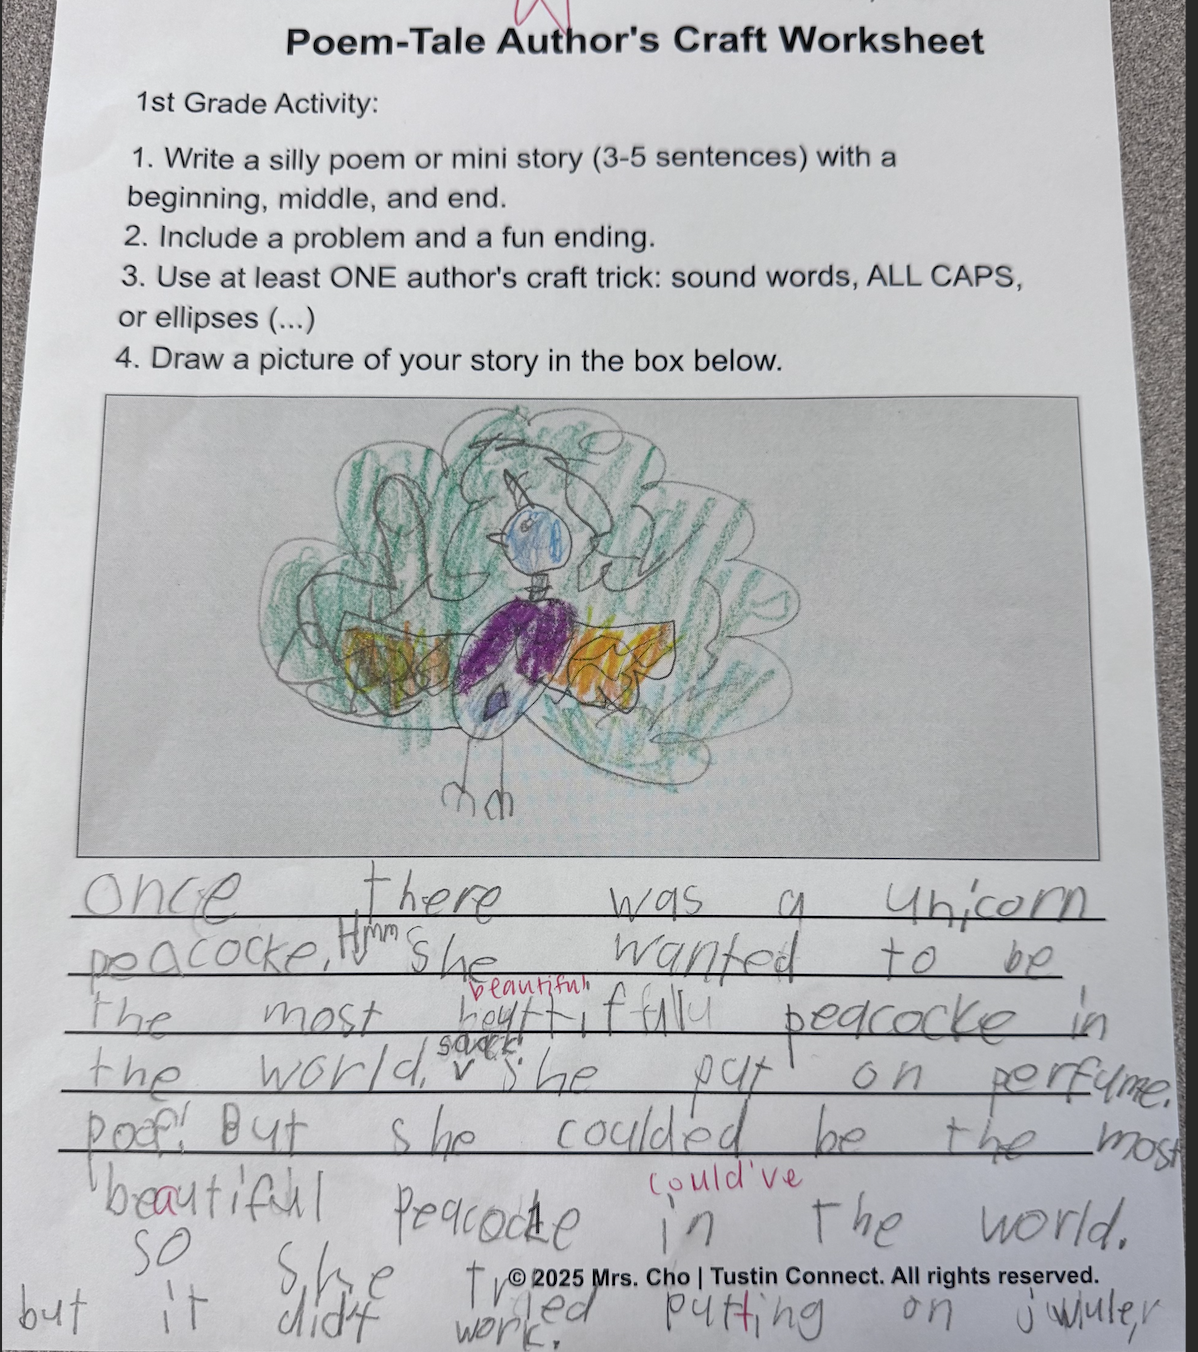 Poem-Tale Author's Craft Worksheet
1st Grade Activity:
1. Write a silly poem or mini story (3-5 sentences) with a
beginning, middle, and end.
2. Include a problem and a fun ending.
3. Use at least ONE author's craft trick: sound words, ALL CAPS,
or ellipses (...)
4. Draw a picture of your story in the box below.
once there was a unicorn
peacocke. Hmm She wanted to be
beautiful
the most peacocke in
the world. she put on perfume.
poof! But she coulded be the most
could've
beautiful peacocke in the world.
so she tried putting on
but it didt work.
© 2025 Mrs. Cho | Tustin Connect. All rights reserved.